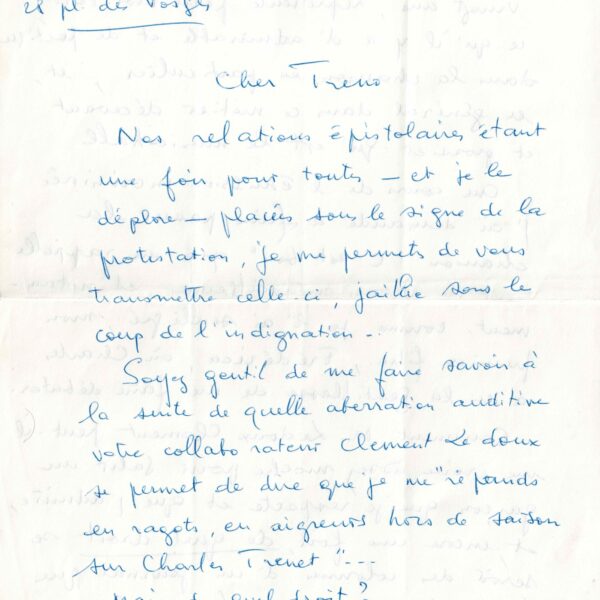 28 pl. des Vosges
Cher Treno
Nos relations épistolaires étant
une fois pour toutes – et je le
déplore – placées sous le signe de la
protestation, je me permets de vous
transmettre celle-ci, jaillie sous le
coup de l'indignation..
Soyez gentil de me faire savoir à
la suite de quelle aberration auditive
votre collaborateur Clement Le doux
se permet de dire que je me "répands
en ragots, en aigreurs hors de saison
sur Charles Trenet"...
quel droit?